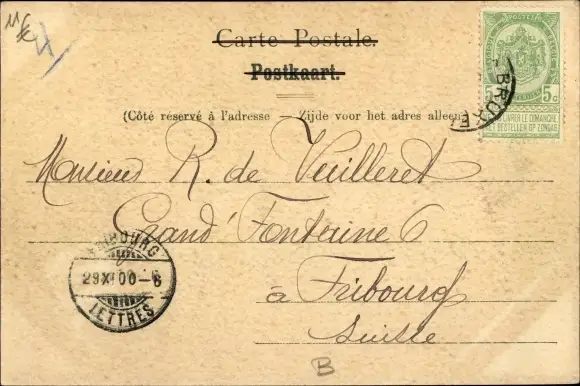 Carte Postale.
Postkaart.
(Côté réservé à l'adresse Zijde voor het adres alleen)
5c 5c
NE PAS LIVRER LE DIMANCHE
NIET BESTELLEN OP ZONDAG
BRUXE
Monsieur R. de Vuilleret
Grand' Fontaine 6
à Fribourg
Suisse
FRIBOURG
29 XI 00 - 6
LETTRES
B